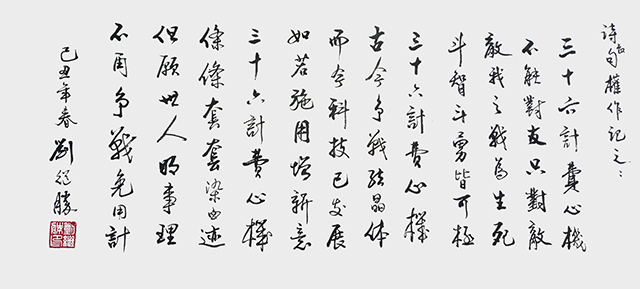 诗句權作記之：
三十六計費心機
不能對友只對敵
敵我之戰為生死
斗智斗勇皆可極
三十六計費心機
古今争戰結晶体
而今科技已发展
如若施用增新意
三十六計費心機
條條套套染血迹
但願世人明事理
不用争戰免用計
己丑年春 劉從勝